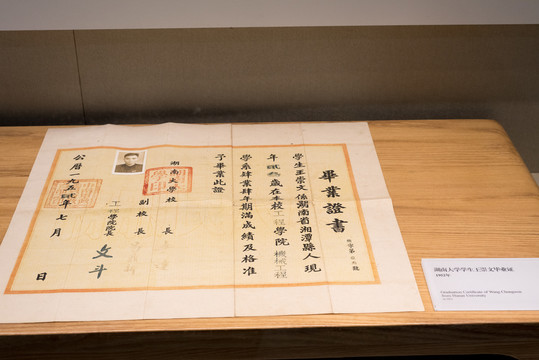 畢業證書
學生王崇文係湖南省湘潭縣人現
年 歲在本校工程學院機械工程
學系肄業肆年期滿成績及格准
予畢業此證
湖南大學校長
副校長
工程學院院長 文斗
公曆一九五 年七月 日
湖南大学学生王崇文毕业证
Graduation Certificate of Wang Chongwen
from Hunan University